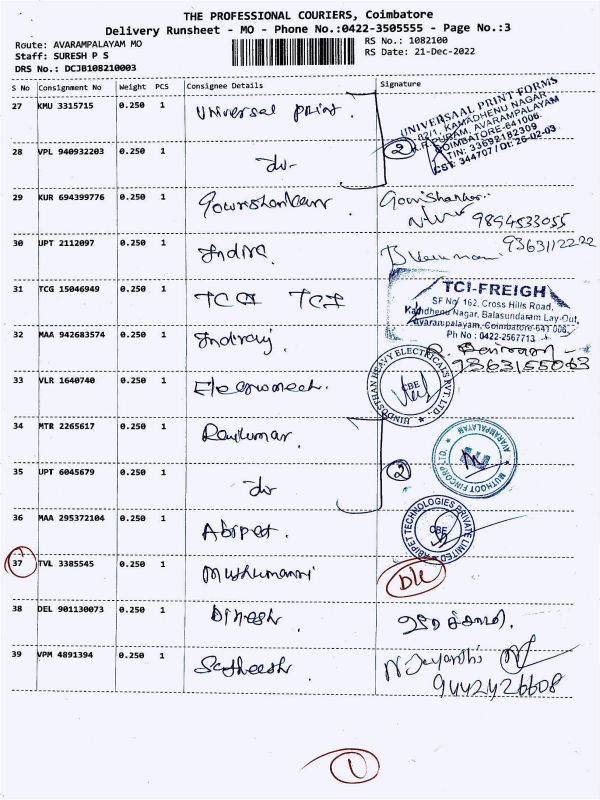 THE PROFESSIONAL COURIERS, Coimbatore
Delivery Runsheet - MO - Phone No.:0422-3505555 - Page No.:3
Route: AVARAMPALAYAM MO
RS No.: 1082100
Staff: SURESH P S
RS Date: 21-Dec-2022
DRS No.: DCJB108210003
S No Consignment No Weight PCS Consignee Details Signature
27 KMU 3315715 0.250 1 Universal print.
UNIVERSAAL PRINT FORMS
82/1, KAMADHENU NAGAR
K.R. PURAM, AVARAMPALAYAM
COIMBATORE-641006.
TIN: 33692182309
CST: 344707 / Dt: 26-02-03
28 VPL 940932203 0.250 1 do- 2
29 KUR 694399776 0.250 1 Gowrishankar. Gowrishankar.
9894533055
30 UPT 2112097 0.250 1 Indira. 9363112222
31 TCG 15046949 0.250 1 TCI TCI
TCI-FREIGH
SF No 162, Cross Hills Road,
Kamdhenu Nagar, Balasundaram Lay-Out,
Avarampalayam, Coimbatore-641 006.
Ph No : 0422-2567713
32 MAA 942683574 0.250 1 Indiraj.
9363155063
33 VLR 1640740 0.250 1
HINDOSTHAN HEAVY ELECTRICALS PVT. LTD.,
CBE
34 MTR 2265617 0.250 1 Ravikumar.
MUTHOOT FINCORP LTD. AVARAMPALAYAM
35 UPT 6045679 0.250 1 do- 2
36 MAA 295372104 0.250 1 Abipet.
ABIPET TECHNOLOGIES PRIVATE LIMITED
CBE
37 TVL 3385545 0.250 1 DLC
38 DEL 901130073 0.250 1 Dinesh
39 VPM 4891394 0.250 1 Satheesh N Jayanthi
9442426608
1